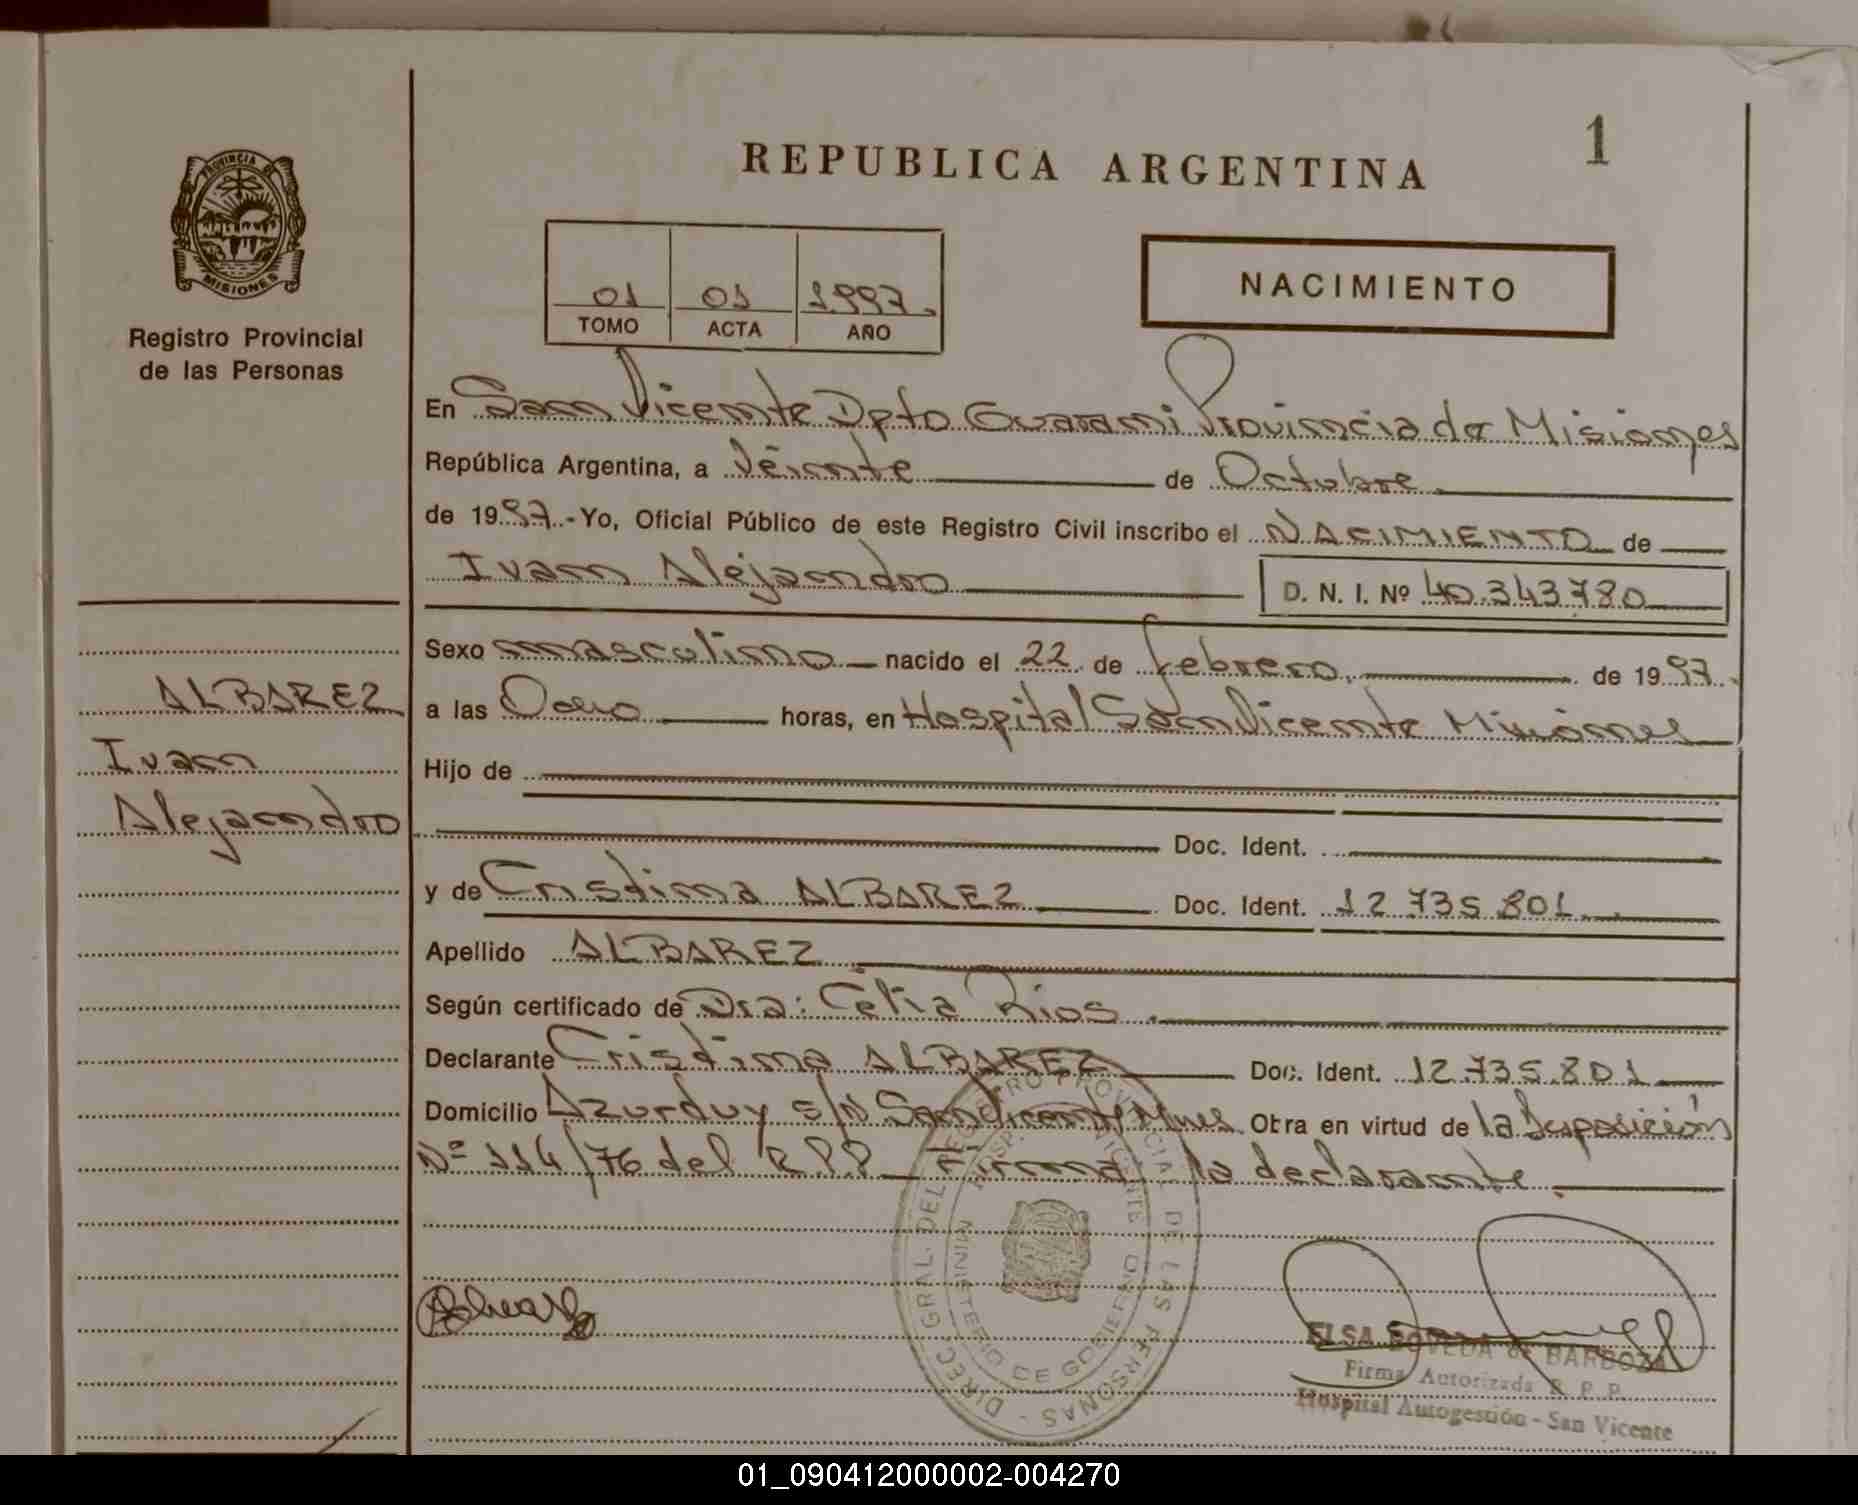 1
REPUBLICA ARGENTINA
PROVINCIA
MISIONES
Registro Provincial
de las Personas
01 01 1997.
TOMO ACTA AÑO
NACIMIENTO
En San Vicente Dpto Guarani Provincia de Misiones
República Argentina, a Veinte de Octubre
de 1997.- Yo, Oficial Público de este Registro Civil inscribo el NACIMIENTO de
Ivan Alejandro D. N. I. Nº 40.343.780
Sexo masculino nacido el 22 de febrero, de 1997.
a las Ocho horas, en Hospital San Vicente Misiones
Hijo de
Doc. Ident.
y de Cristina ALBAREZ Doc. Ident. 12.735.801.
Apellido ALBAREZ
Según certificado de Dra: Celia Rios.
Declarante Cristina ALBAREZ Doc. Ident. 12.735.801
Domicilio Azurduy s/n San Vicente Mnes Otra en virtud de la Disposición
Nº 114/76 del R.P.P. Firma la declarante.
ALBAREZ
Ivan
Alejandro
DIREC. GRAL. DEL REGISTRO PROVINCIAL DE LAS PERSONAS
MINISTERIO DE GOBIERNO
HOSP. VICENTE
ELSA BOVEDA de BARBOZA
Firma Autorizada R. P. P.
Hospital Autogestión - San Vicente
01_090412000002-004270